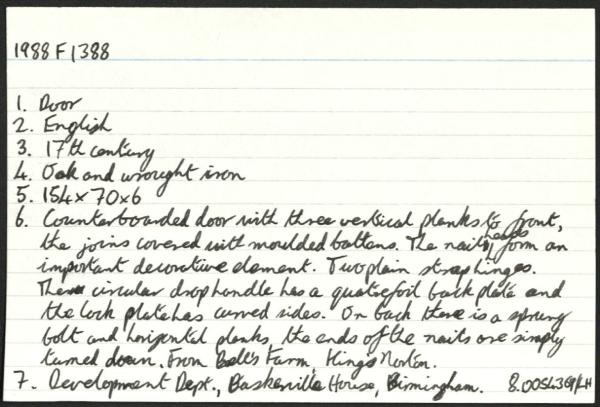 1988 F 1388
1. Door
2. English
3. 17th century
4. Oak and wrought iron
5. 154x70x6
6. Counterboarded door with three vertical planks to front,
the joins covered with moulded battens. The nail heads form an
important decorative element. Two plain strap hinges.
The circular drop handle has a quatrefoil back plate and
the lock plate has curved sides. On back there is a sprung
bolt and horizontal planks, the ends of the nails are simply
turned down. From Bells Farm, Kings Norton.
7. Development Dept., Baskerville House, Birmingham.